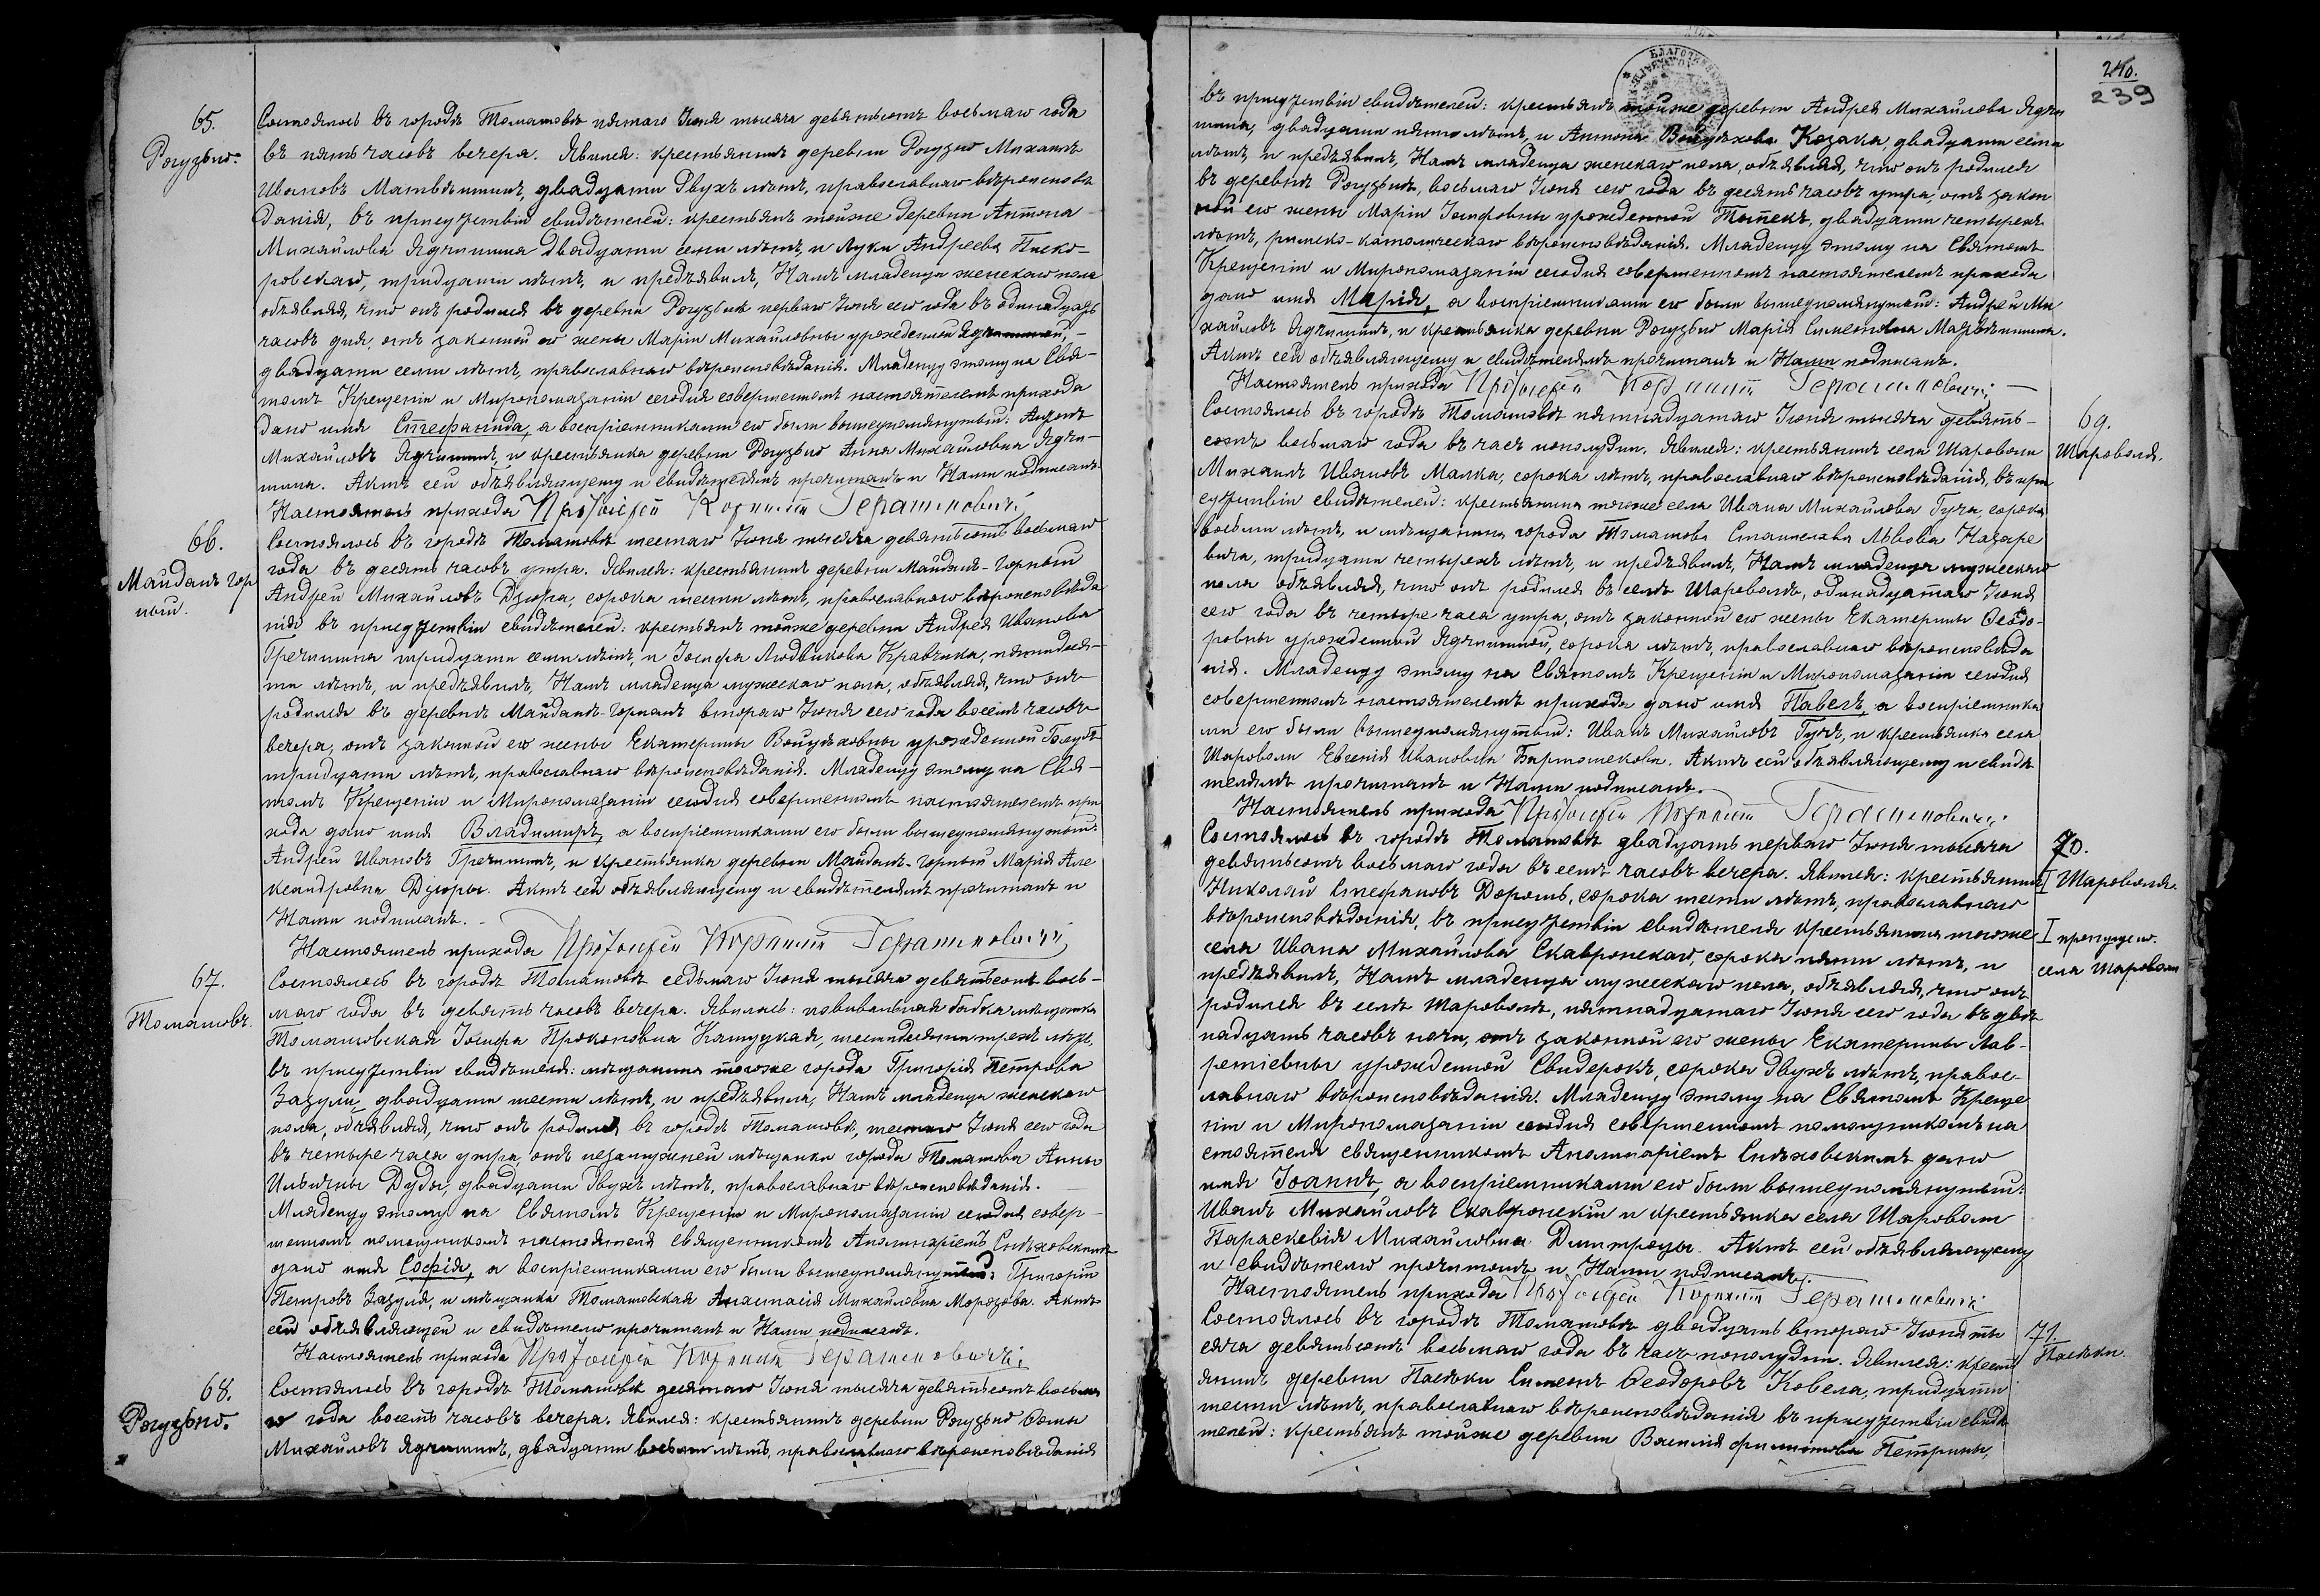 65.
Рогузьно.
Состоялось въ городѣ Томашовѣ пятаго Іюня тысяча девятьсотъ восьмаго года
въ пять часовъ вечера. Явился: крестьянинъ деревни Рогузно Михаилъ
Ивановъ Матвѣишинъ, двадцати двухъ лѣтъ, православнаго вѣроисповѣ
данія, въ присутствіи свидѣтелей: крестьянъ тойже деревни Антона
Михайлова Ядчишина двадцати семи лѣтъ, и Луки Андреева Писко-
ровскаго, тридцати лѣтъ, и предъявилъ, Намъ младенца женскаго пола
объявляя, что онъ родился въ деревни Рогузьнѣ перваго Іюня сего года въ одинадцать
часовъ дня, отъ законной его жены Маріи Михайловны урожденной Ядчишиной,
двадцати семи лѣтъ, православнаго вѣроисповѣданія. Младенцу этому на Свя-
томъ Крещеніи и Миропомазаніи сегодня совершенномъ настоятелемъ прихода
дано имя Стефанида, а воспріемниками его были вышеупомянутый: Антонъ
Михайловъ Ядчишинъ, и крестьянка деревни Рогузьно Анна Михайловна Ядчи-
шина. Актъ сей объявляющему и свидѣтелямъ прочитанъ и Нами подписанъ.
Настоятель прихода Протоіерей Корнилій Герасимовичъ
66.
Майданъ гор
ный.
Состоялось въ городѣ Томашовѣ шестаго Іюня тысяча девятьсотъ восьмаго
года въ десять часовъ утра. Явился: крестьянинъ деревни Майданъ-горный
Андрей Михайловъ Дзюра, сорока шести лѣтъ, православнаго вѣроисповѣда
нія въ присутствіи свидѣтелей: крестьянъ тойже деревни Андрея Иванова
Гречишина тридцати семи лѣтъ, и Іосифа Людвикова Кравчика, пятидеся-
ти лѣтъ, и предъявилъ, Намъ младенца мужескаго пола, объявляя, что онъ
родился въ деревнѣ Майданѣ-горномъ втораго Іюня сего года восемь часовъ
вечера, отъ законной его жены Екатерины Войцѣховны урожденной
тридцати лѣтъ, православнаго вѣроисповѣданія. Младенцу этому на Свя-
томъ Крещеніи и Миропомазаніи сегодня совершенномъ настоятелемъ при
хода дано имя Владимиръ, а воспріемниками его были вышеупомянутый:
Андрей Ивановъ Гречишинъ, и крестьянка деревни Майданъ-горный Марія Але
ксандровна Дзюры. Актъ сей объявляющему и свидѣтелямъ прочитанъ и
Нами подписанъ.
Настоятель прихода Протоіерей Корнилій Герасимовичъ
67.
Томашовъ.
Состоялось въ городѣ Томашовѣ седьмаго Іюня тысяча девятьсотъ вось-
маго года въ девять часовъ вечера. Явилась: повивальная бабка мѣщанка
Томашовская Іосифа Прокоповна Кашуцкая, шестидесяти трехъ лѣтъ,
въ присутствіи свидѣтеля: мѣщанина тогоже города Григорія Петрова
Зазули, двадцати шести лѣтъ, и предъявила, Намъ младенца женскаго
пола, объявляя, что онъ родился въ городѣ Томашовѣ, шестаго Іюня сего года
въ четыре часа утра, отъ незамужней мѣщанки города Томашова Анны
Ильичны Дуды, двадцати двухъ лѣтъ, православнаго вѣроисповѣданія.
Младенцу этому на Святомъ Крещеніи и Миропомазаніи сегодня совер-
шенномъ помощникомъ настоятеля священникомъ Аполинаріемъ Снѣховскимъ
дано имя Софія, а воспріемниками его были вышеупомянутый: Григорій
Петровъ Зазуля, и мѣщанка Томашовская Анастасія Михайловна Морозова. Актъ
сей объявляющей и свидѣтелю прочитанъ и Нами подписанъ.
Настоятель прихода Протоіерей Корнилій Герасимовичъ
68.
Рогузьно.
Состоялось въ городѣ Томашовѣ десятаго Іюня тысяча девятьсотъ восьма
го года восемь часовъ вечера. Явился: крестьянинъ деревни Рогузьно Ѳома
Михайловъ Ядчишинъ, двадцати восьми лѣтъ, православнаго вѣроисповѣданія
240.
239
въ присутствіи свидѣтелей: крестьянъ тойже деревни Андрея Михайлова Ядчи
шина, двадцати пяти лѣтъ, и Антона Войцѣхова Козака, двадцати семи
лѣтъ, и предъявилъ, Намъ младенца женскаго пола, объявляя, что онъ родился
въ деревнѣ Рогузьнѣ, восьмаго Іюня сего года въ десять часовъ утра, отъ закон
ной его жены Маріи Іосифовны урожденной, двадцати четырехъ
лѣтъ, римско-католическаго вѣроисповѣданія. Младенцу этому на Святомъ
Крещеніи и Миропомазаніи сегодня совершенномъ настоятелемъ прихода
дано имя Марія, а воспріемниками его были вышеупомянутый: Андрей Ми
хайловъ Ядчишинъ, и крестьянка деревни Рогузьно Марія Симеоновна Матвѣишина.
Актъ сей объявляющему и свидѣтелямъ прочитанъ и Нами подписанъ.
Настоятель прихода Протоіерей Корнилій Герасимовичъ
69.
Шароволя.
Состоялось въ городѣ Томашовѣ пятнадцатаго Іюня тысяча девять-
сотъ восьмаго года въ часъ пополудни. Явился: крестьянинъ села Шароволи
Михаилъ Ивановъ Малка, сорока лѣтъ, православнаго вѣроисповѣданія, въ при
сутствіи свидѣтелей: крестьянина тогоже села Ивана Михайлова Гуча, сорока
восьми лѣтъ, и мѣщанина города Томашова Станислава Львова Назаре
вича, тридцати четырехъ лѣтъ, и предъявилъ, Намъ младенца мужескаго
пола объявляя, что онъ родился въ селѣ Шароволѣ, одинадцатаго Іюня
сего года въ четыре часа утра, отъ законной его жены Екатерины Ѳеодо-
ровны урожденной Ядчишиной, сорока лѣтъ, православнаго вѣроисповѣда
нія. Младенцу этому на Святомъ Крещеніи и Миропомазаніи сегодня
совершенномъ настоятелемъ прихода дано имя Павелъ, а воспріемника
ми его были вышеупомянутый: Иванъ Михайловъ Гучъ, и крестьянка села
Шароволи Евгенія Ивановна Бартошекова. Актъ сей объявляющему и свидѣ
телямъ прочитанъ и Нами подписанъ.
Настоятель прихода Протоіерей Корнилій Герасимовичъ
70.
Шароволя.
Состоялось въ городѣ Томашовѣ двадцать перваго Іюня тысяча
девятьсотъ восьмаго года въ семь часовъ вечера. Явился: крестьянинъ I
Николай Стефановъ Дорошъ, сорока шести лѣтъ, православнаго
вѣроисповѣданія, въ присутствіи свидѣтеля крестьянина тогоже
I пропущено.
села Шароволи
села Ивана Михайлова Скавронскаго, сорока пяти лѣтъ, и
предъявилъ, Намъ младенца мужескаго пола, объявляя, что онъ
родился въ селѣ Шароволѣ, пятнадцатаго Іюня сего года въ двѣ
надцать часовъ ночи, отъ законной его жены Екатерины Лав-
ретіевны урожденной Свидерокъ, сорока двухъ лѣтъ, правос-
лавнаго вѣроисповѣданія. Младенцу этому на Святомъ Креще
ніи и Миропомазаніи сегодня совершенномъ помощникомъ на
стоятеля священникомъ Аполинаріемъ Снѣховскимъ дано
имя Іоаннъ, а воспріемниками его были вышеупомянутый:
Иванъ Михайловъ Скавронскій и крестьянка села Шароволи
Параскевія Михайловна Дмитроцы. Актъ сей объявляющему
и свидѣтелю прочитанъ и Нами подписанъ.
Настоятель прихода Протоіерей Корнилій Герасимовичъ
71.
Пасѣки.
Состоялось въ городѣ Томашовѣ двадцать втораго Іюня ты
сяча девятьсотъ восьмаго года въ часъ пополудни. Явился: кресть
янинъ деревни Пасѣки Симеонъ Ѳеодоровъ Ковела, тридцати
шести лѣтъ, православнаго вѣроисповѣданія въ присутствіи свидѣ
телей: крестьянъ тойже деревни Василія Филипова Петрины,